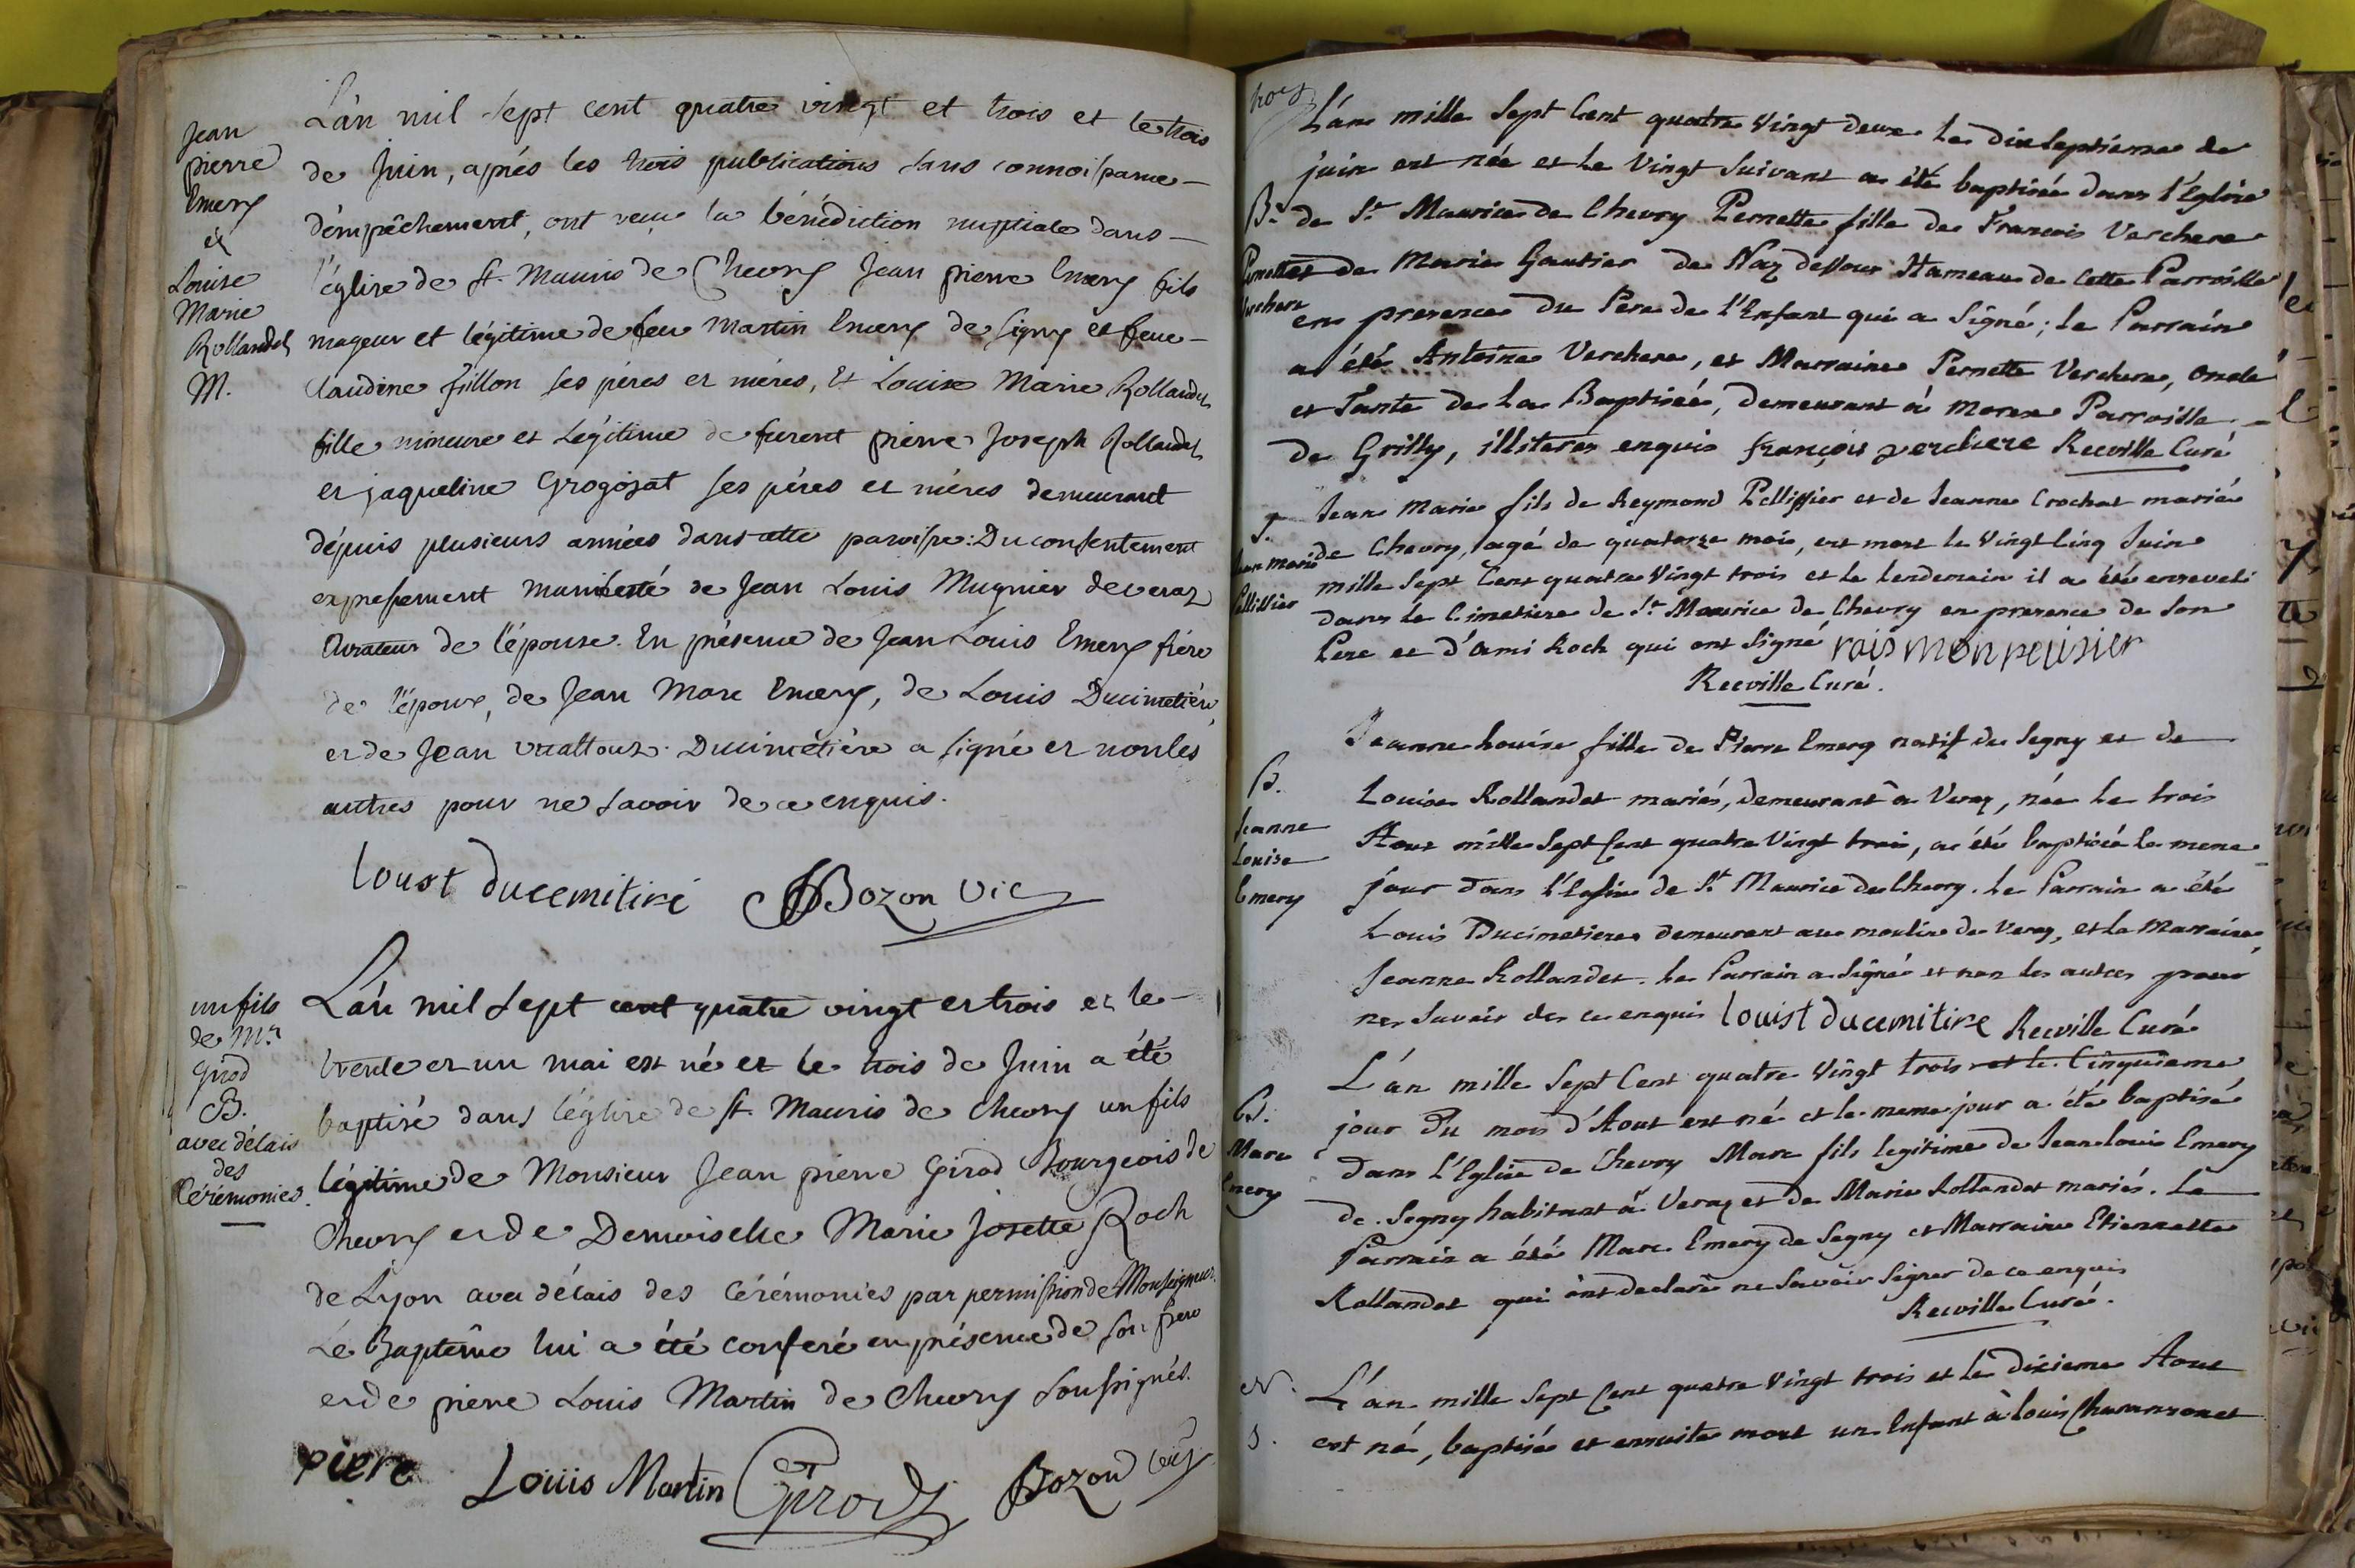 Jean
pierre
Emery
et
Louise
Marie
Rollandet
M.
L'an mil sept cent quatre vingt et trois et le trois
de Juin, aprés les trois publications sans connoissance
d'émpêchement, ont reçu la bénédiction nuptiale dans
l'église de St. Mauris de Chevry Jean pierre Emery fils
mageur et légitime de feu Martin Emery de Signy et feue
Claudine fillon ses péres et méres, Et Louise Marie Rollandet
fille mineure et Légitime de furent pierre Joseph Rollandet
et jaqueline Grogojat ses péres et méres demeurant
dépuis plusieurs années dans cette paroisse: Du consentement
expressement manifesté de Jean Louis Mugnier de veraz
Curateur de l'épouse. En présence de Jean Louis Emery frére
de l'époux, de Jean Marc Emery, de Louis Ducimetiére,
et de Jean vuattoux. Ducimetiére a signé et non les
autres pour ne savoir de ce enquis.
louist ducemitire Bozon vic
un fils
de Mr.
Girod
B.
avec délais
des
Cérémonies.
L'an mil sept cent quatre vingt et trois et le
trente et un mai est né et le trois de Juin a été
baptisé dans l'église de St. Mauris de Chevry un fils
légitime de Monsieur Jean pierre Girod Bourgeois de
Chevry et de Demoiselle Marie Josette Roch
de Lyon avec délais des Cérémonies par permission de Monseigneur.
Le Baptême lui a été conferé en présence de son pere
et de pierre Louis Martin de Chevry soussignés.
piere Louis Martin Girod Bozon vic
L'an mille sept Cent quatre vingt deux le dixseptiéme de
juin est née et le vingt suivant a été baptisée dans l'Eglise
Be.
Pernette
Verchere
de St. Maurice de Chevry Pernette fille de Francois Verchere
et de Marie Gautier de Naz dessous Hameau de cette Parroisse
en presence du Pere de l'Enfant qui a signé; le Parrain
a été Antoine Verchere, et Marraine Pernette Verchere, Oncle
et Tante de la Baptisée, demeurant à Morex Parroisse
de Grilly, illiteres enquis françois verchere Recville Curé
S.
Jean marie
Pellissier
Jean Marie fils de Reymond Pellissier et de Jeanne Crochat mariés
de Chevry, agé de quatorze mois, est mort le vingt Cinq Juin
mille sept Cent quatre vingt trois et le lendemain il a été enseveli
dans le Cimetiere de St. Maurice de Chevry en presence de son
Pere et d'Ami Roch qui ont signé raismon peisier
Recville Curé.
B.
Jeanne
Louise
Emery
Jeanne Louise fille de Pierre Emery natif de Segny et de
Louise Rollandet mariés, demeurant à Veraz, née le trois
Aout mille sept Cent quatre vingt trois, a été baptisée le meme
jour dans l'Eglise de St. Maurice de Chevry. Le Parrain a été
Louis Ducimetiere demeurant au moulin de Veraz, et la Marraine
Jeanne Rollandet. Le Parrain a signé et non les autres pour
ne savoir de ce enquis louist ducemitire Recville Curé
B.
Marc
Emery
L'an mille sept Cent quatre vingt trois et le Cinquieme
jour du mois d'Aout est né et le meme jour a été baptisé
dans l'Eglise de Chevry Marc fils legitime de Jean louis Emery
de Segny habitant à Veraz et de Marie Rollandet mariés. Le
Parrain a été Marc Emery de Segny et Marraine Etiennette
Rollandet qui ont declaré ne savoir signer de ce enquis
Recville Curé.
N.
S.
L'an mille sept Cent quatre vingt trois et le dixieme Aout
est né, baptisé et ensuite mort un Enfant à louis Chavansonet